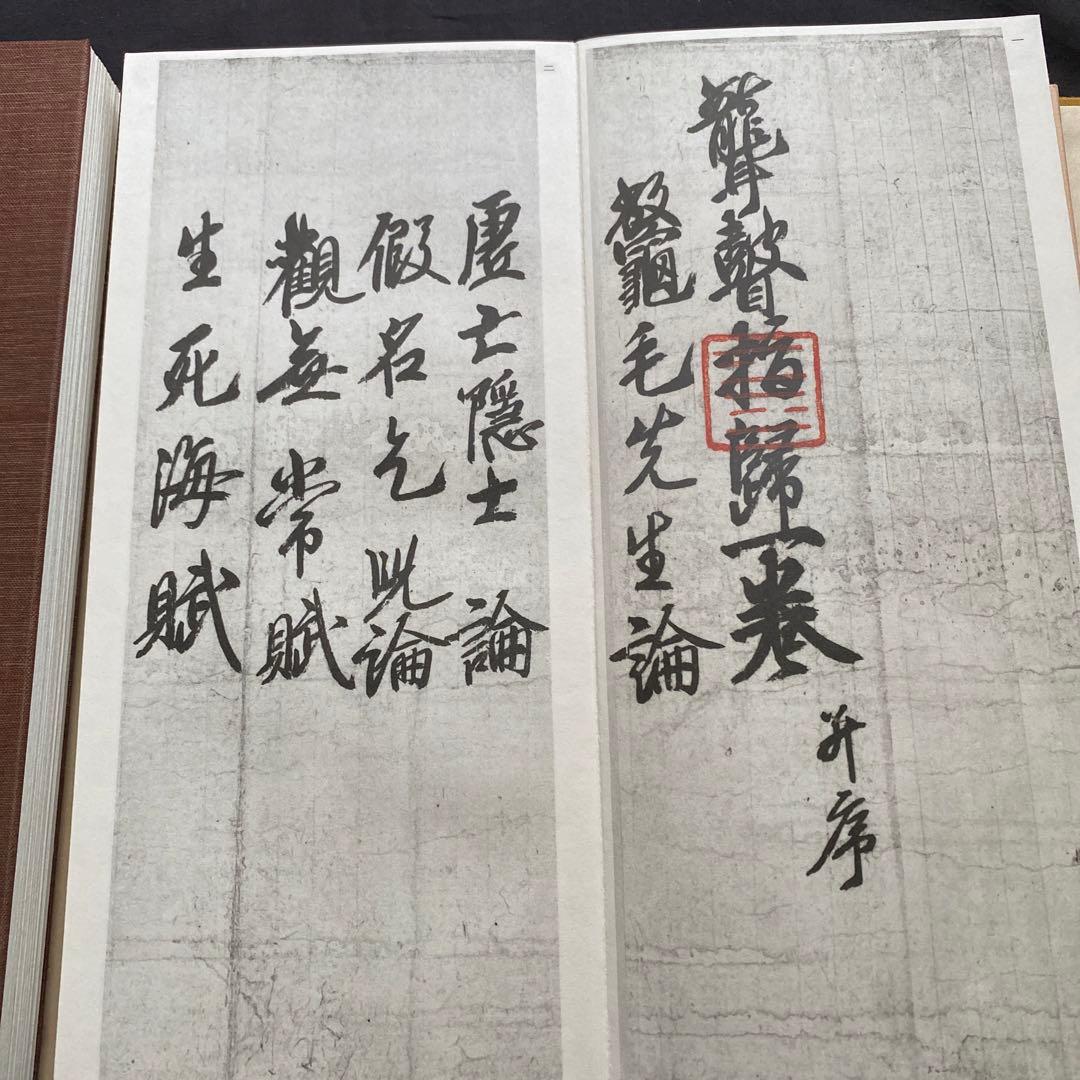 一
聾瞽指歸一卷 并序
鼈毛先生論
二
虛亡隱士論
假名乞児論
觀無常賦
生死海賦